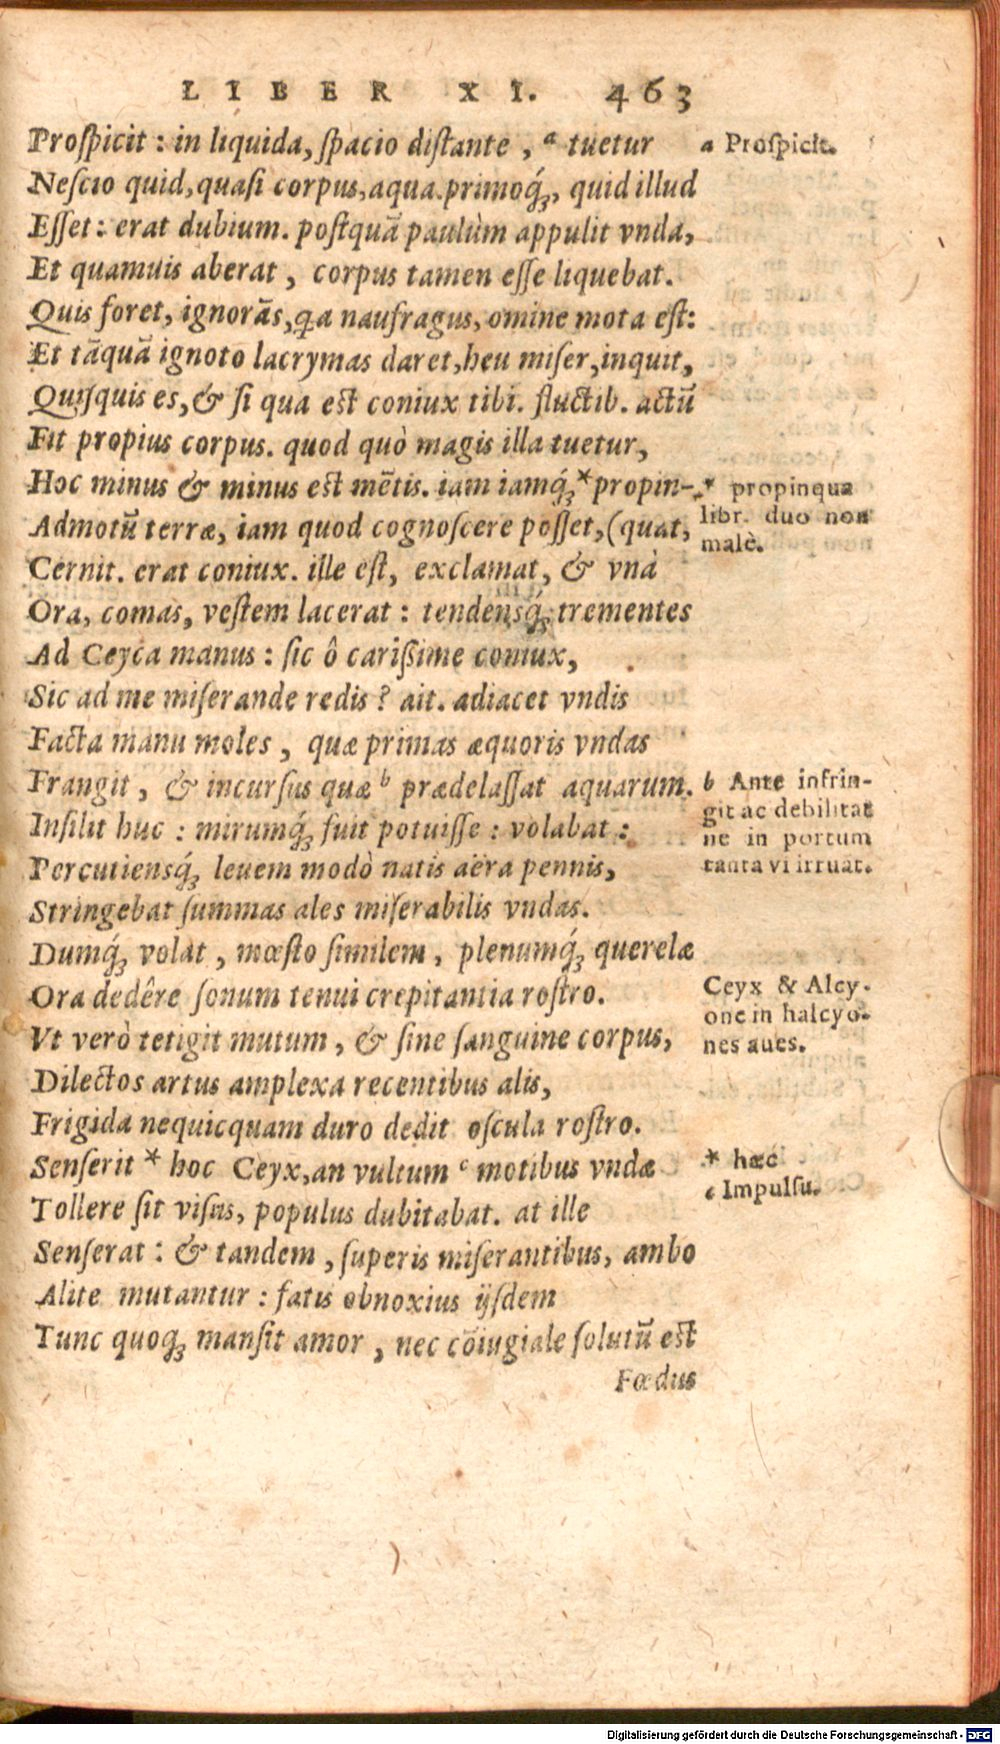 LIBER XI. 463
Proſpicit: in liquida, ſpacio diſtante, ᵃ tuetur
Neſcio quid, quaſi corpus, aqua. primoq́ꝫ, quid illud
Eſſet: erat dubium. poſtquā paulùm appulit vnda,
Et quamuis aberat, corpus tamen eſſe liquebat.
Quis foret, ignorās, ꝗa naufragus, omine mota eſt:
Et tāquā ignoto lacrymas daret, heu miſer, inquit,
Quiſquis es, & ſi qua eſt coniux tibi. fluctib. actū
Fit propius corpus. quod quò magis illa tuetur,
Hoc minus & minus est mētis. iam iamq́ꝫ *propin-
Admotū terræ, iam quod cognoſcere poſſet, (quat,
Cernit. erat coniux. ille eſt, exclamat, & vnà
Ora, comas, veſtem lacerat: tendensq́ꝫ trementes
Ad Ceyca manus: ſic ô carißime coniux,
Sic ad me miſerande redis? ait. adiacet vndis
Facta manu moles, quæ primas æquoris vndas
Frangit, & incurſus quæ ᵇ prædelaſſat aquarum.
Inſilit huc: mirumq́ꝫ fuit potuiſſe: volabat:
Percutiensq́ꝫ leuem modò natis aëra pennis,
Stringebat ſummas ales miſerabilis vndas.
Dumq́ꝫ volat, mœſto ſimilem, plenumq́ꝫ querelæ
Ora dedêre ſonum tenui crepitantia roſtro.
Vt verò tetigit mutum, & ſine ſanguine corpus,
Dilectos artus amplexa recentibus alis,
Frigida nequicquam duro dedit oſcula roſtro.
Senſerit * hoc Ceyx, an vultum ᶜ motibus vndæ
Tollere ſit viſus, populus dubitabat. at ille
Senſerat: & tandem, ſuperis miſerantibus, ambo
Alite mutantur: fatis obnoxius ijſdem
Tunc quoqꝫ manſit amor, nec cōiugiale ſolutū eſt
Fœdus
a Proſpicit.
* propinqua
libr. duo non
malè.
b Ante infrin-
git ac debilitat
ne in portum
tanta vi irruat.
Ceyx & Alcy-
one in halcyo-
nes aues.
* hæc
c Impulſu.
Digitalisierung gefördert durch die Deutsche Forschungsgemeinschaft - DFG